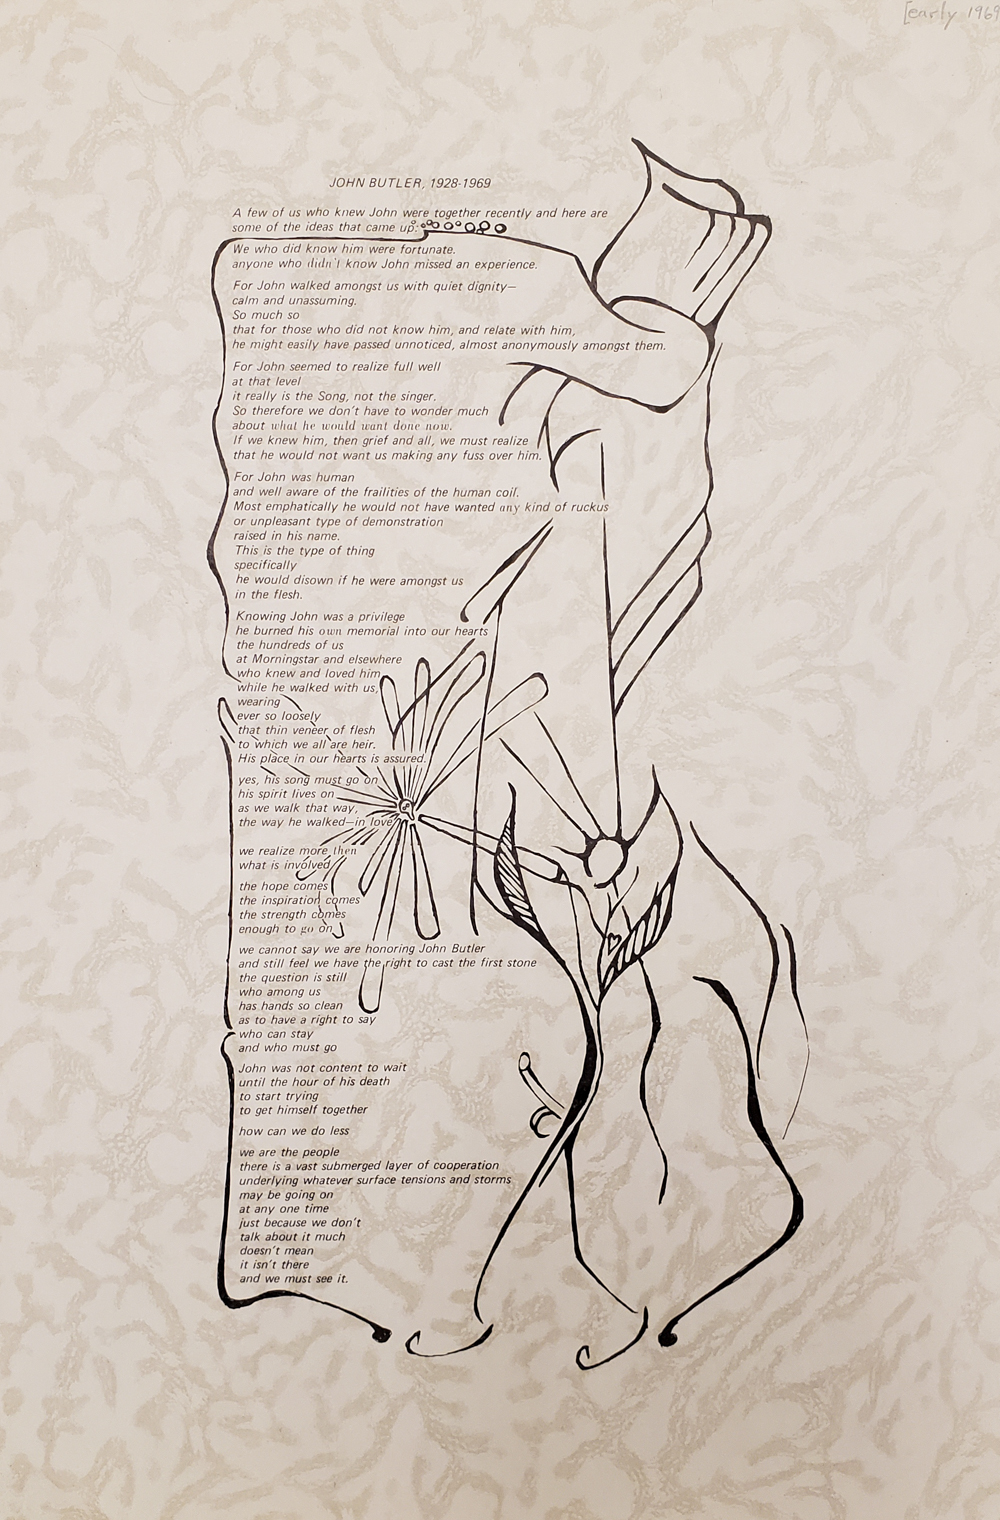 [early 1969
JOHN BUTLER, 1928-1969
A few of us who knew John were together recently and here are
some of the ideas that came up:
We who did know him were fortunate.
anyone who didn't know John missed an experience.
For John walked amongst us with quiet dignity—
calm and unassuming.
So much so
that for those who did not know him, and relate with him,
he might easily have passed unnoticed, almost anonymously amongst them.
For John seemed to realize full well
at that level
it really is the Song, not the singer.
So therefore we don't have to wonder much
about what he would want done now.
If we knew him, then grief and all, we must realize
that he would not want us making any fuss over him.
For John was human
and well aware of the frailities of the human coil.
Most emphatically he would not have wanted any kind of ruckus
or unpleasant type of demonstration
raised in his name.
This is the type of thing
specifically
he would disown if he were amongst us
in the flesh.
Knowing John was a privilege
he burned his own memorial into our hearts
the hundreds of us
at Morningstar and elsewhere
who knew and loved him
while he walked with us,
wearing
ever so loosely
that thin veneer of flesh
to which we all are heir.
His place in our hearts is assured.
yes, his song must go on
his spirit lives on
as we walk that way,
the way he walked—in love
we realize more then
what is involved
the hope comes
the inspiration comes
the strength comes
enough to go on
we cannot say we are honoring John Butler
and still feel we have the right to cast the first stone
the question is still
who among us
has hands so clean
as to have a right to say
who can stay
and who must go
John was not content to wait
until the hour of his death
to start trying
to get himself together
how can we do less
we are the people
there is a vast submerged layer of cooperation
underlying whatever surface tensions and storms
may be going on
at any one time
just because we don't
talk about it much
doesn't mean
it isn't there
and we must see it.